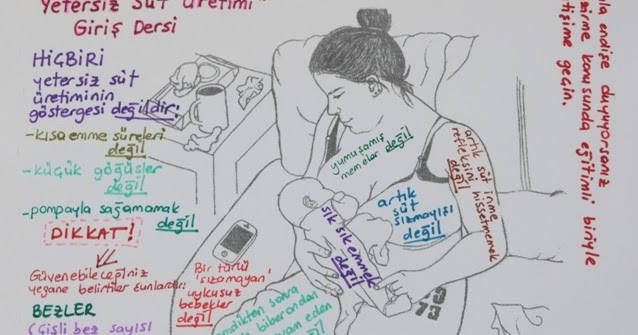 Yetersiz Süt Üretimi"
Giriş Dersi
HİÇBİRİ
yetersiz süt
üretiminin
göstergesi değildir!
-kısa emme süreleri
değil
-küçük göğüsler
değil
-pompayla sağamamak
değil
DİKKAT!
Güvenebileceğiniz
yegane belirtiler şunlardır:
BEZLER
(Çişli bez sayısı
Bir türlü
"sızamayan"
uykusuz
bebekler
değil
yumuşamış
memeler değil
artık süt inme
refleksini hissetmemek
değil
artık
süt
sızmayışı
değil
sık sık emmek
değil
emdikten sonra
bir biberondan
devam eden
endişe duyuyorsanız
emzirme konusunda eğitimli biriyle
iletişime geçin.